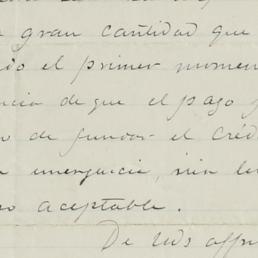 gran cantidad que
el primer momen
de que el pago
de fundos el Créd
emergencia, sin
aceptable.
De Uds affm